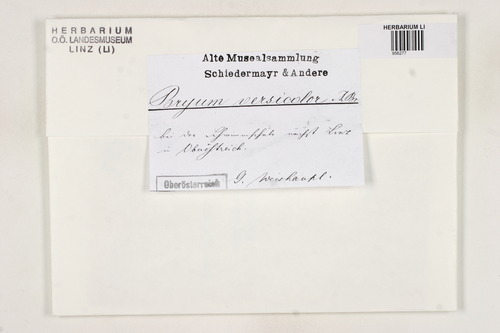 HERBARIUM
O.Ö. LANDESMUSEUM
LINZ (LI)
HERBARIUM LI
Alte Musealsammlung
Schiedermayr & Andere
Bryum versicolor ABr.
bei der Schwimmschule nächst Linz
in Oberöstreich.
Oberösterreich
G. Weishäupl.